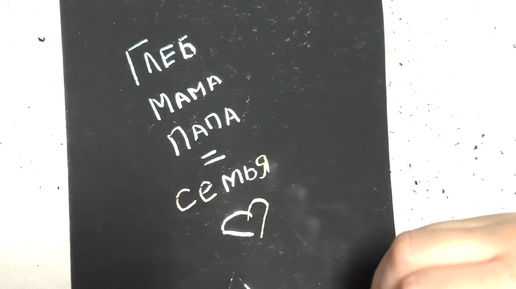 Глеб
мама
папа
=
семья